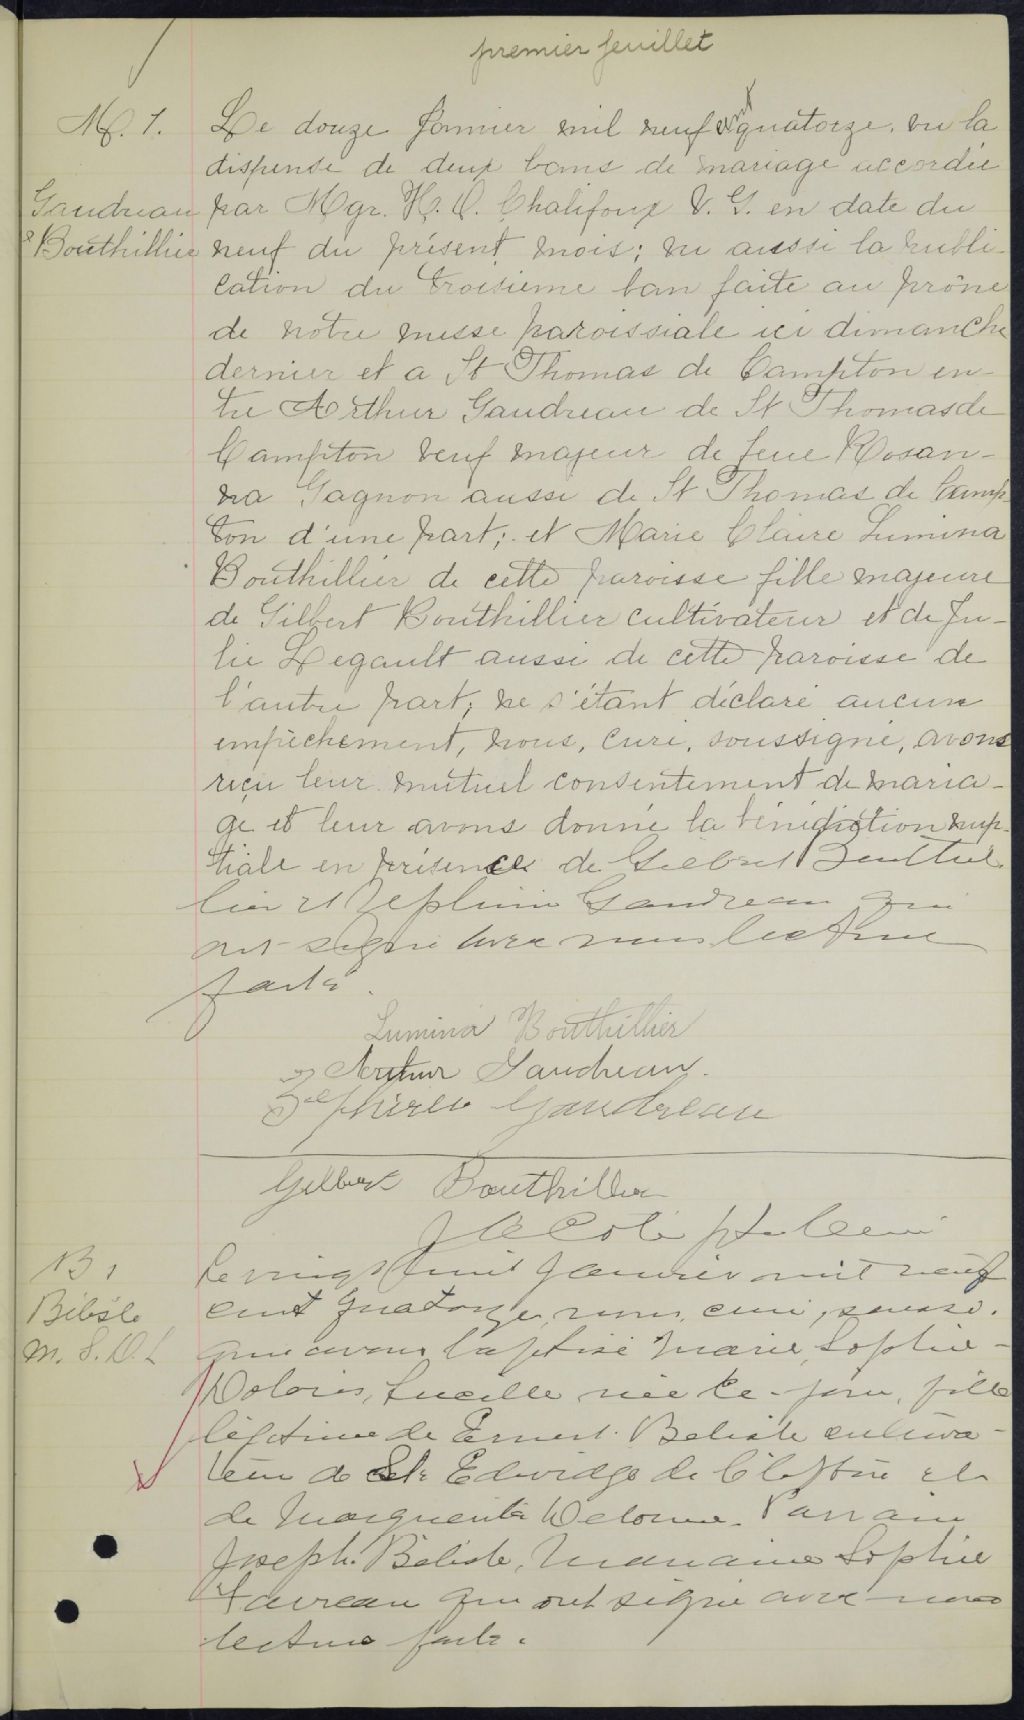 premier feuillet
M. 1.
Gaudreau
& Bouthillier
Le douze Janvier mil neuf cent quatorze, vu la
dispense de deux bans de mariage accordée
par Mgr. H. O. Chalifoux V. G. en date du
neuf du présent mois; vu aussi la publi-
cation du troisieme ban faite au prône
de notre messe paroissiale ici dimanche
dernier et a St Thomas de Compton en-
tre Arthur Gaudreau de St Thomas de
Compton veuf majeur de feue Rosan-
na Gagnon aussi de St Thomas de Comp-
ton d'une part; et Marie Claire Lumina
Bouthillier de cette paroisse fille majeure
de Gilbert Bouthillier cultivateur et de Ju-
lie Legault aussi de cette paroisse de
l'autre part; ne s'étant déclaré aucun
empèchement, nous, curé, soussigné, avons
reçu leur mutuel consentement de maria-
ge et leur avons donné la bénédiction nup-
tiale en présence de Gilbert Bouthil
lier et Zephirin Gaudreau qui
ont signé avec nous lecture
faite.
Lumina Bouthillier
Arthur Gaudreau.
Zephirin Gaudreau
Gilbert Bouthillier
J Coté ptre Curé
B 1
Bélisle
M. S. D. L
Le vingt huit Janvier mil neuf
cent quatorze, nous, curé, soussi-
gné avons baptisé Marie, Sophie-
Doloris, Lucille née le jour, fille
légitime de Ernest Belisle cultiva-
teur de Ste Edwidge de Clifton et
de Marguerite Delorme. Parrain
Joseph Bélisle, Marraine Sophie
Favreau qui ont signé avec nous
lecture faite.